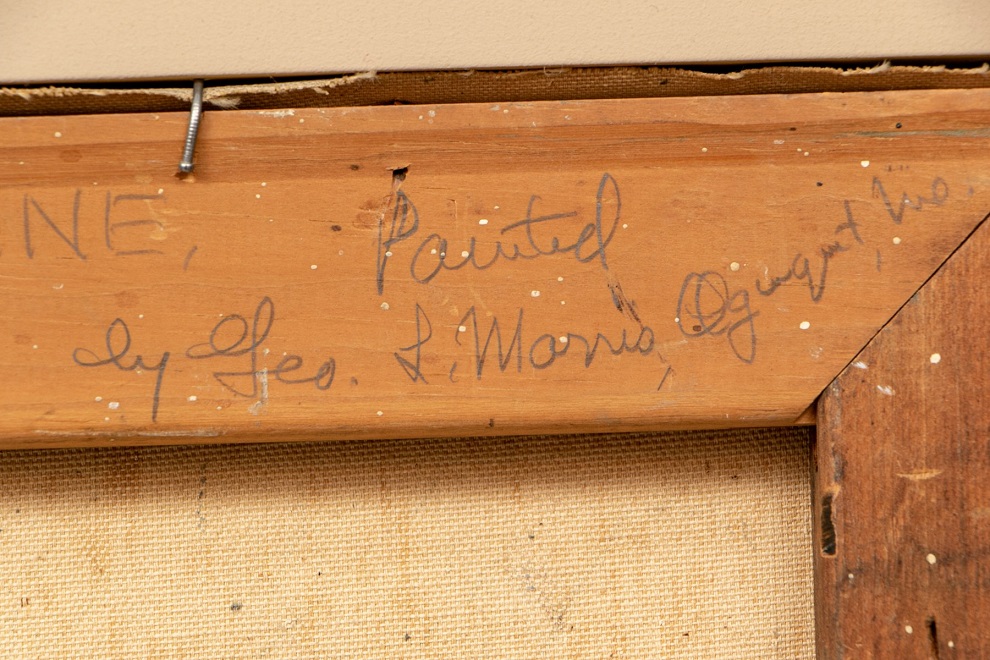 NE, Painted
by Geo. L. Morris, Ogunquit, Me.